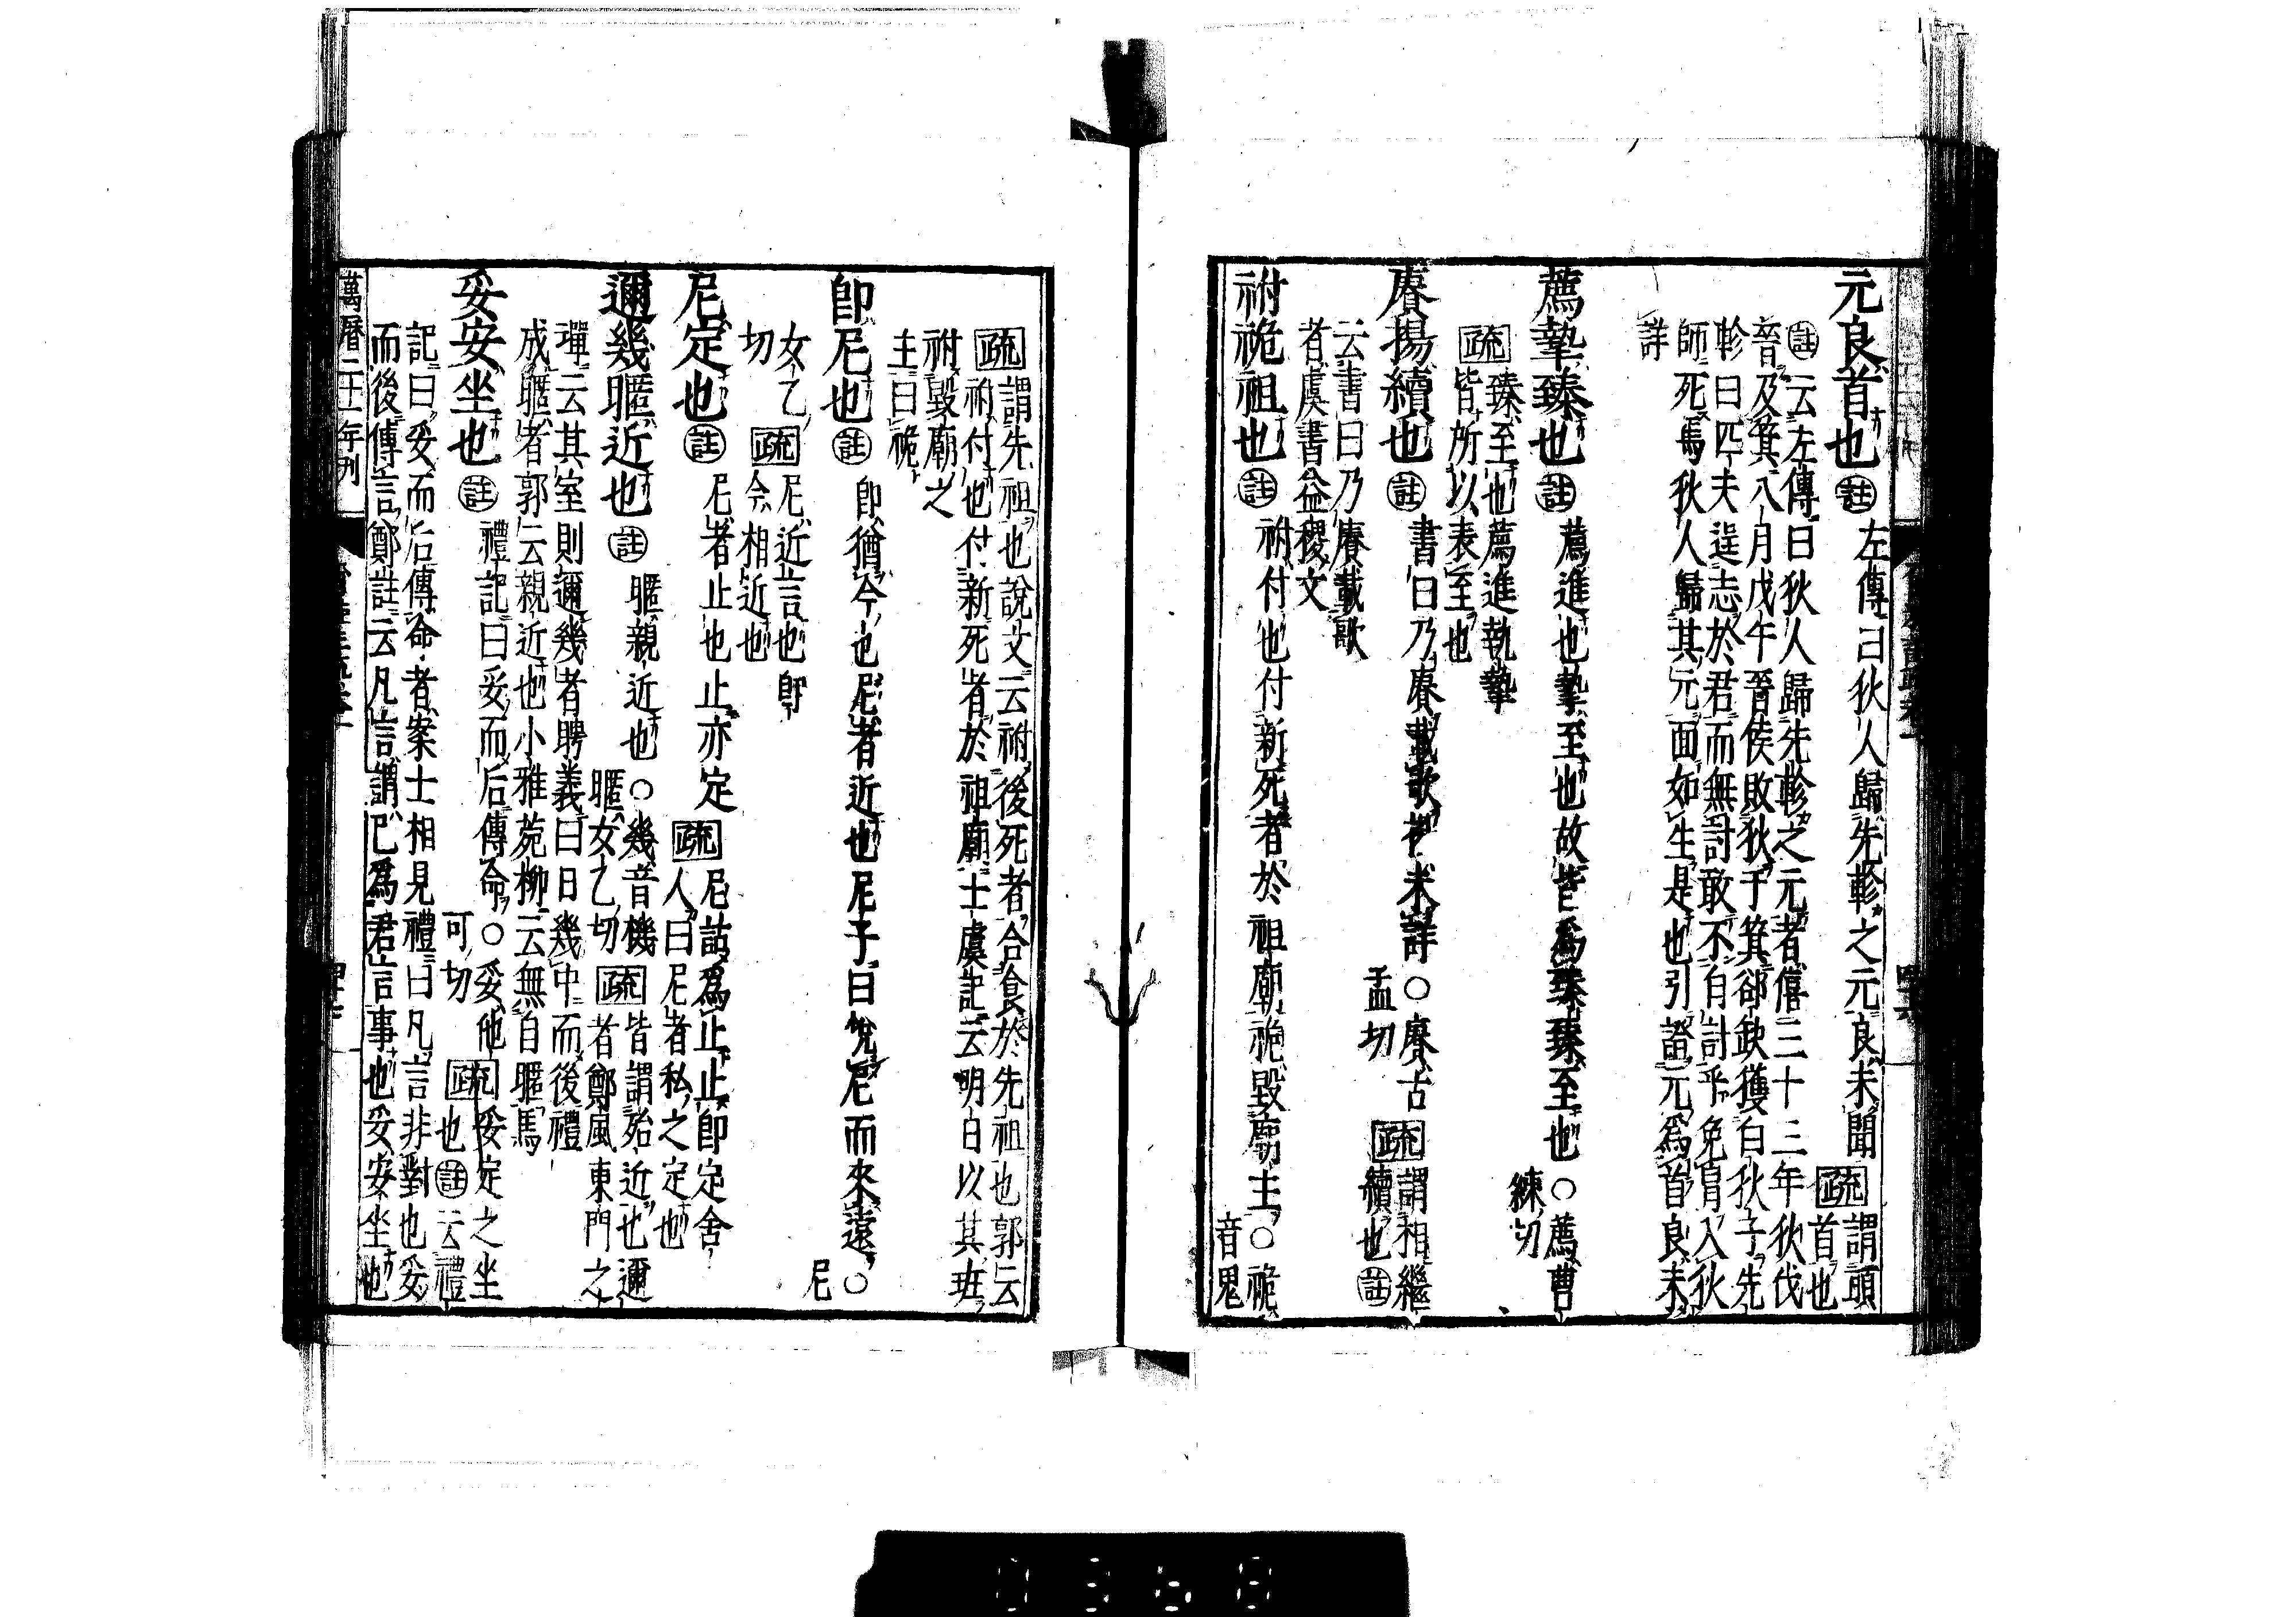 元良首也㊟左傳曰狄人歸先軫之元良未聞疏謂頭首也
㊟云左傳曰狄人歸先軫之元者僖三十三年狄伐
晉及箕八月戊午晉侯敗狄于箕郤缺獲白狄子先
軫曰匹夫逞志於君而無討敢不自討乎免冑入狄
師死焉狄人歸其元面如生是也引證元爲首良未
詳
薦摯臻也㊟薦進也摯至也故皆爲臻臻至也○薦曹練切
疏臻至也薦進執摯
皆所以表至也
賡揚續也㊟書曰乃賡載歌揚未詳○賡古孟切疏謂相繼續也㊟
云書曰乃賡載歌
者虞書益稷文
祔祪祖也㊟祔付也付新死者於祖廟祪毀廟主○祪音鬼
疏謂先祖也說文云祔後死者合食於先祖也郭云
祔付也付新死者於祖廟士虞記云明日以其班
祔毀廟之
主曰祪
卽尼也㊟卽猶今也尼者近也尼子曰悅尼而來遠○尼
女乙切疏尼近言也卽今相近也
尼定也㊟尼者止也止亦定疏尼詁爲止止卽定舍人曰尼者私之定也
邇幾暱近也㊟暱親近也○幾音機暱女乙切疏皆謂殆近也邇者鄭風東門之
墠云其室則邇幾者聘義曰日幾中而後禮
成暱者郭云親近也小雅菀柳云無自暱焉
妥安坐也㊟禮記曰妥而后傳命○妥他可切疏妥定之坐也㊟云禮
記曰妥而后傳命者案士相見禮曰凡言非對也妥
而後傳言鄭註云凡言謂己爲君言事也妥安坐也
萬曆二十一年刊